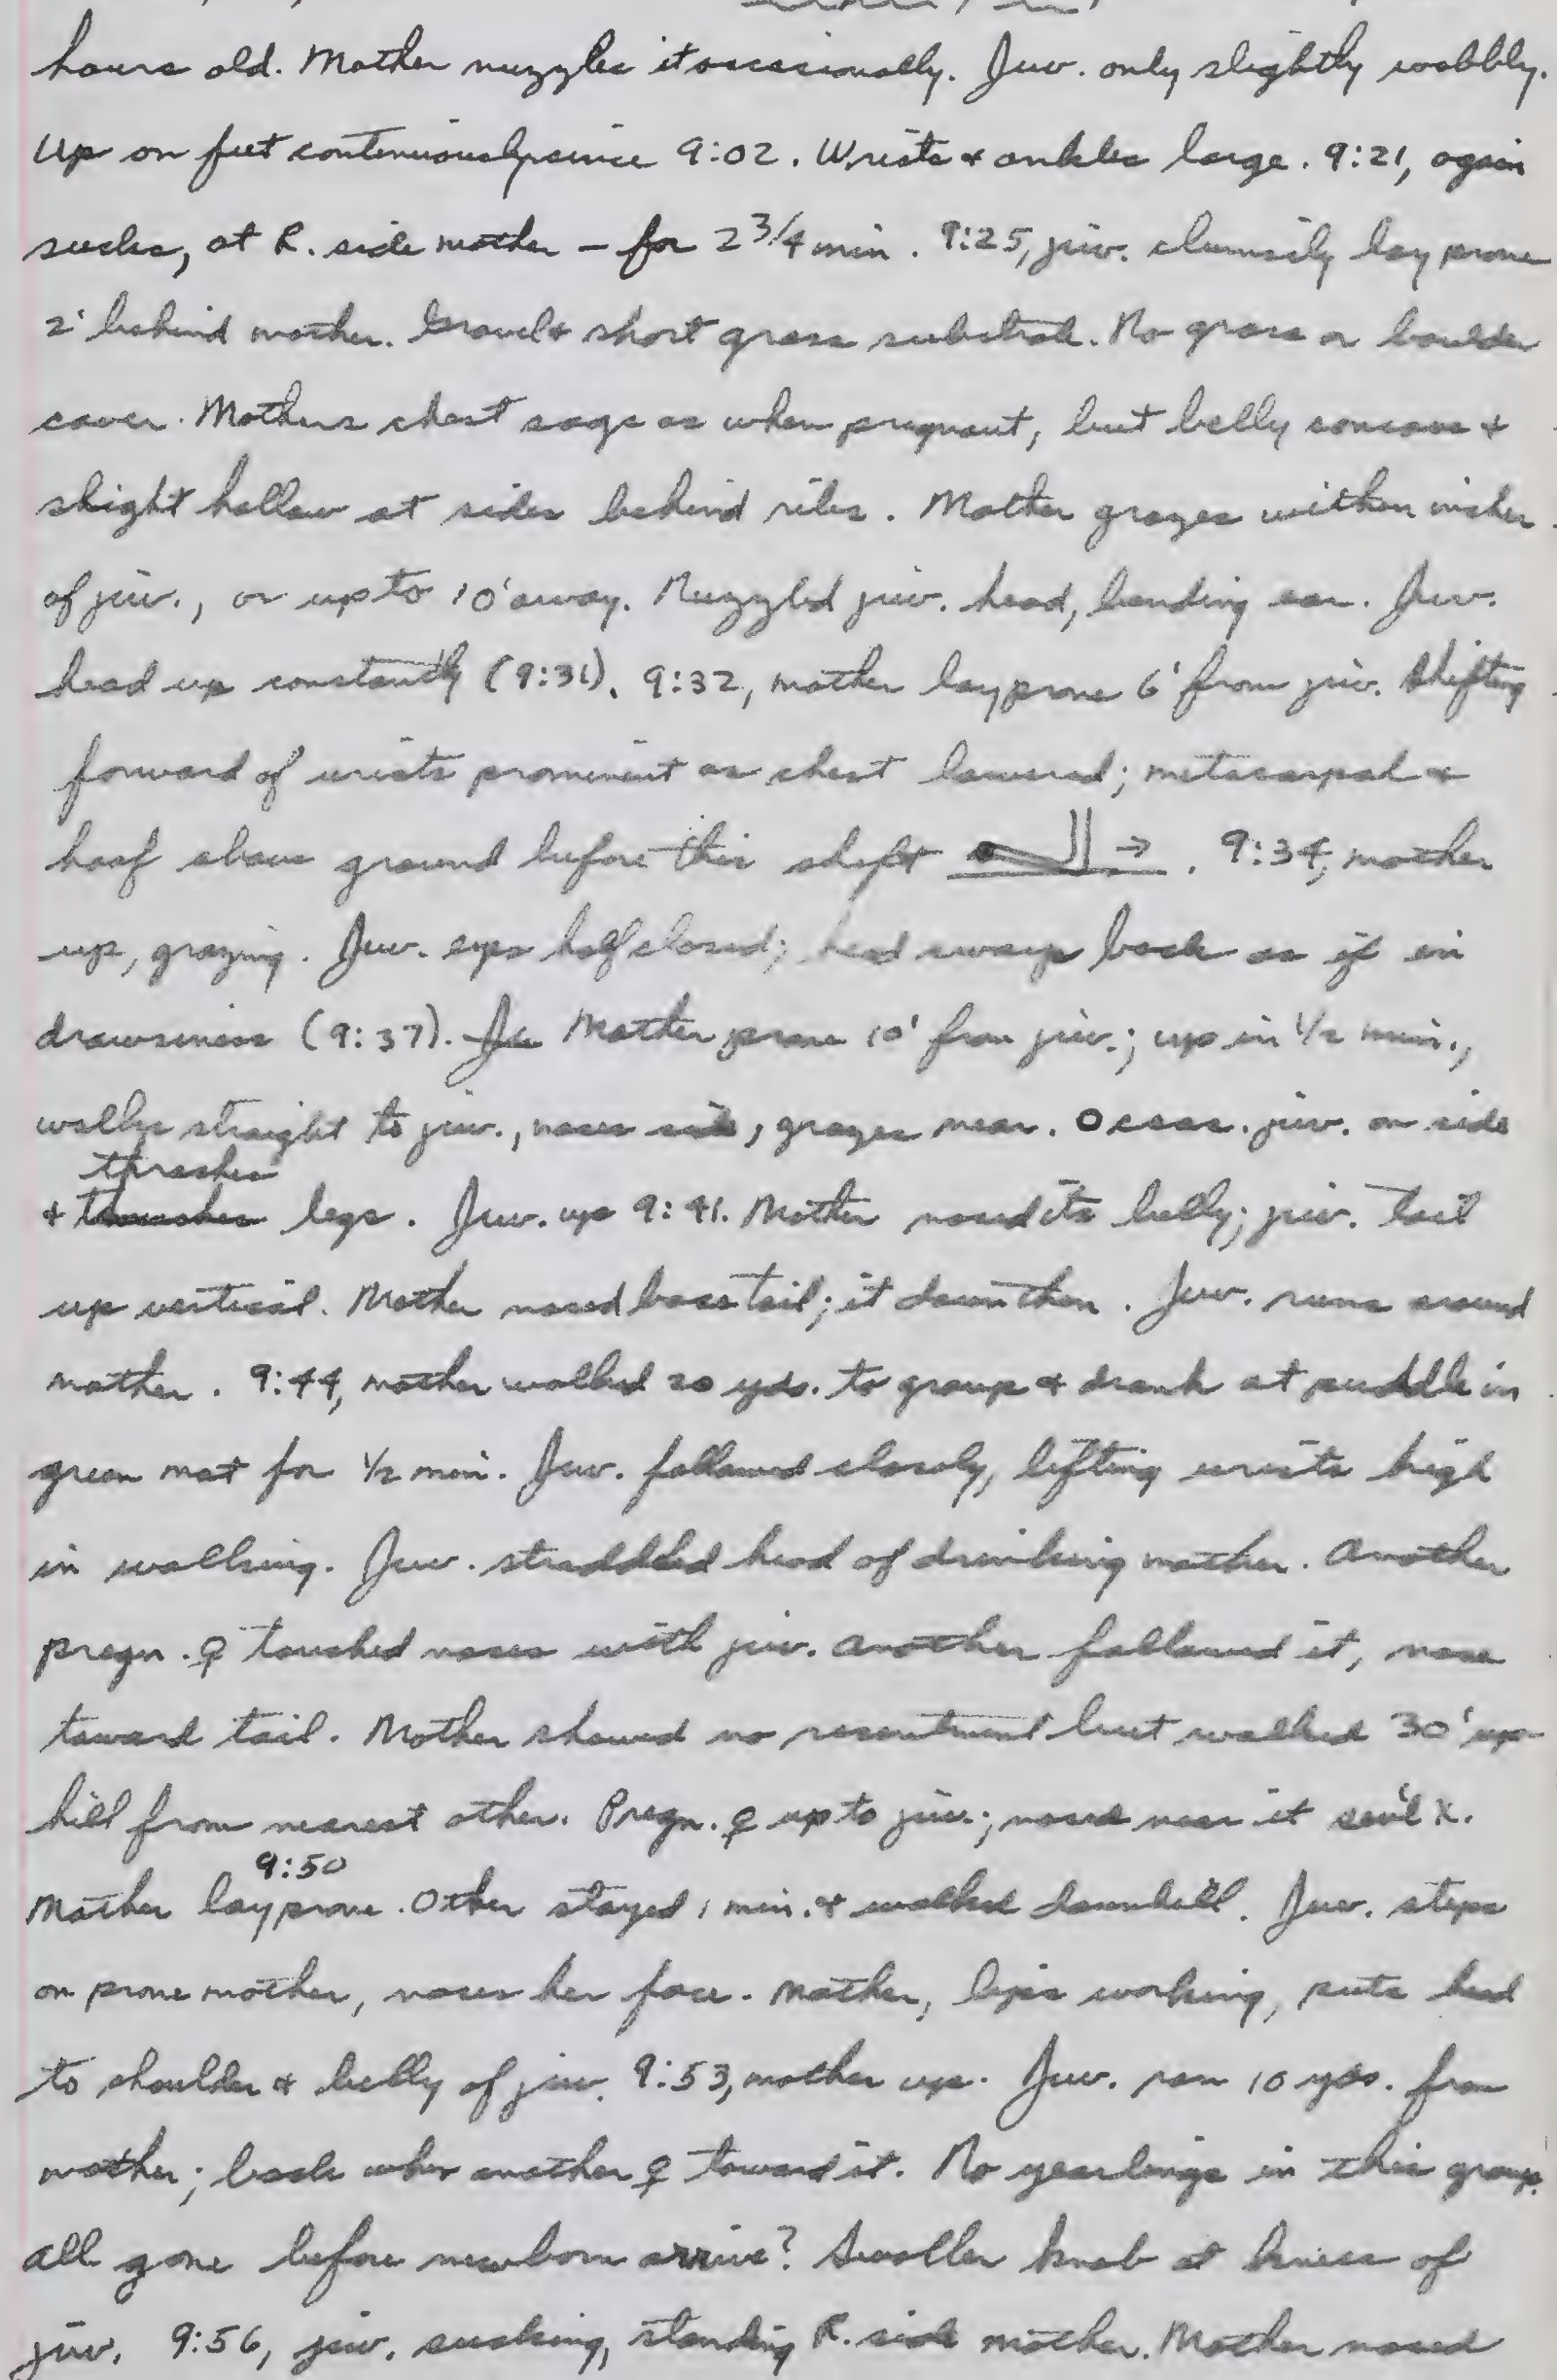 hours old. Mother nuzzles it occasionally. Juv. only slightly wobbly.
Up on feet continuously since 9:02. Wrists & ankles large. 9:21, again
sucks, at R. side mother – for 2 3/4 min. 9:25, juv. clumsily lay prone
2' behind mother. Gravel & short grass substrate. No grass or boulder
cover. Mothers chest sags as when pregnant, but belly concave &
slight hollow at sides behind ribs. Mother grazes within inches
of juv., or up to 10' away. Nuzzled juv. head, bending ear. Juv.
head up constantly (9:31). 9:32, mother lay prone 6' from juv. Shifting
forward of wrists prominent as chest lowered; metacarpal &
hoof above ground before this shift → . 9:34, mother
up, grazing. Juv. eyes half closed; head sways back as if in
drowsiness (9:37). Ju Mother prone 10' from juv.; up in 1/2 min.,
walks straight to juv., noses side, grazes near. Occas. juv. on side
thrashes
& legs. Juv. up 9:41. Mother nosed its belly; juv. tail
up vertical. Mother nosed base tail; it down then. Juv. runs around
mother. 9:44, mother walked 20 yds. to group & drank at puddle in
green mat for 1/2 min. Juv. followed closely, lifting wrists high
in walking. Juv. straddled head of drinking mother. Another
pregn. ♀ touched noses with juv. Another followed it, nose
toward tail. Mother showed no resentment but walked 30' up
hill from nearest other. Pregn. ♀ up to juv.; nosed near it sev'l x.
9:50
Mother lay prone. Other stayed 1 min. & walked downhill. Juv. steps
on prone mother, noses her face. Mother, lips working, puts head
to shoulder & belly of juv. 9:53, mother up. Juv. ran 10 yds. from
mother; back when another ♀ toward it. No yearlings in this group.
All gone before newborn arrive? Swollen knob at knees of
juv. 9:56, juv. sucking, standing R. side mother. Mother nosed